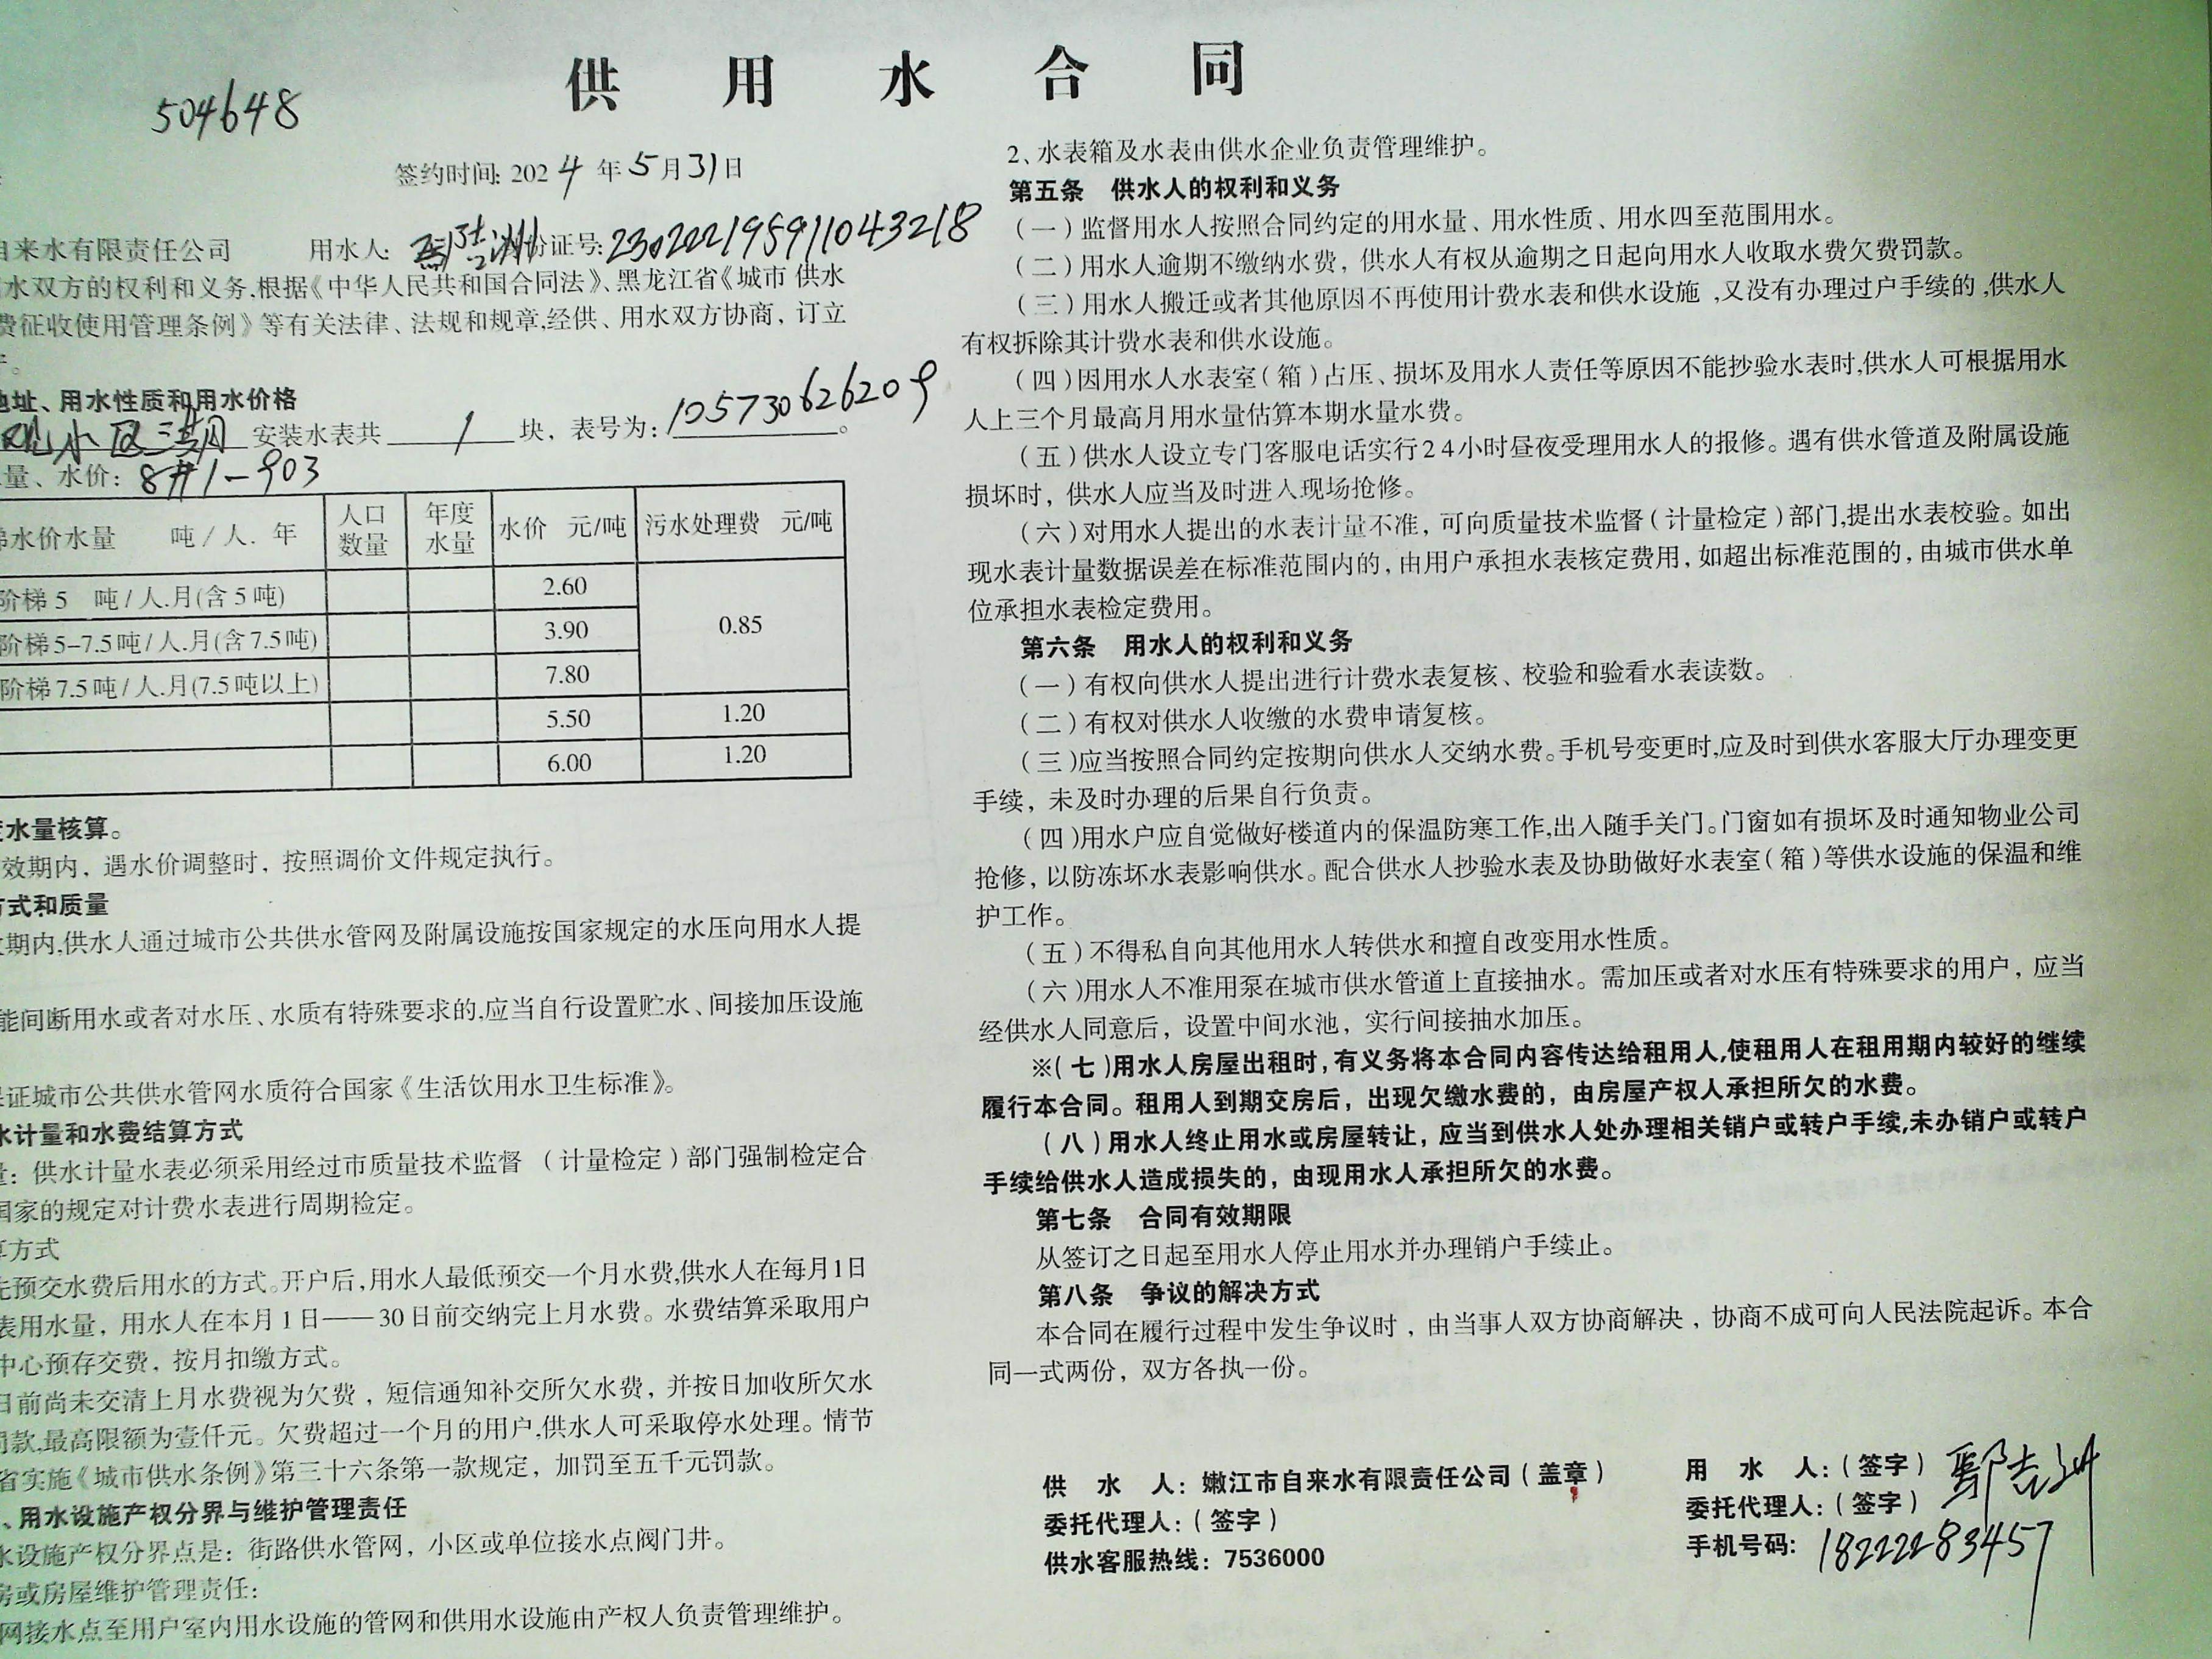 供用水合同
504648
签约时间: 2024年5月31日
自来水有限责任公司 用水人: 份证号: 230222195911043218
水双方的权利和义务,根据《中华人民共和国合同法》、黑龙江省《城市 供水
费征收使用管理条例》等有关法律、法规和规章,经供、用水双方协商，订立
地址、用水性质和用水价格
小区三期 安装水表共 1 块，表号为: 105730626209。
量、水价: 8#1-903
水价水量 吨/人. 年 人口数量 年度水量 水价 元/吨 污水处理费 元/吨
阶梯 5 吨/人.月(含5吨) 2.60 0.85
阶梯5-7.5吨/人.月(含7.5吨) 3.90
阶梯7.5吨/人.月(7.5吨以上) 7.80
5.50 1.20
6.00 1.20
水量核算。
效期内，遇水价调整时，按照调价文件规定执行。
方式和质量
期内,供水人通过城市公共供水管网及附属设施按国家规定的水压向用水人提
能间断用水或者对水压、水质有特殊要求的,应当自行设置贮水、间接加压设施
证城市公共供水管网水质符合国家《生活饮用水卫生标准》。
水计量和水费结算方式
量: 供水计量水表必须采用经过市质量技术监督 (计量检定)部门强制检定合
国家的规定对计费水表进行周期检定。
算方式
先预交水费后用水的方式。开户后,用水人最低预交一个月水费,供水人在每月1日
表用水量，用水人在本月1日——30日前交纳完上月水费。水费结算采取用户
中心预存交费，按月扣缴方式。
日前尚未交清上月水费视为欠费，短信通知补交所欠水费，并按日加收所欠水
罚款,最高限额为壹仟元。欠费超过一个月的用户,供水人可采取停水处理。情节
省实施《城市供水条例》第三十六条第一款规定，加罚至五千元罚款。
、用水设施产权分界与维护管理责任
水设施产权分界点是: 街路供水管网，小区或单位接水点阀门井。
房或房屋维护管理责任:
网接水点至用户室内用水设施的管网和供用水设施由产权人负责管理维护。
2、水表箱及水表由供水企业负责管理维护。
第五条 供水人的权利和义务
(一)监督用水人按照合同约定的用水量、用水性质、用水四至范围用水。
(二)用水人逾期不缴纳水费，供水人有权从逾期之日起向用水人收取水费欠费罚款。
(三)用水人搬迁或者其他原因不再使用计费水表和供水设施 ,又没有办理过户手续的,供水人
有权拆除其计费水表和供水设施。
(四)因用水人水表室(箱)占压、损坏及用水人责任等原因不能抄验水表时,供水人可根据用水
人上三个月最高月用水量估算本期水量水费。
(五)供水人设立专门客服电话实行24小时昼夜受理用水人的报修。遇有供水管道及附属设施
损坏时，供水人应当及时进入现场抢修。
(六)对用水人提出的水表计量不准，可向质量技术监督(计量检定)部门,提出水表校验。如出
现水表计量数据误差在标准范围内的，由用户承担水表核定费用，如超出标准范围的，由城市供水单
位承担水表检定费用。
第六条 用水人的权利和义务
(一)有权向供水人提出进行计费水表复核、校验和验看水表读数。
(二)有权对供水人收缴的水费申请复核。
(三)应当按照合同约定按期向供水人交纳水费。手机号变更时,应及时到供水客服大厅办理变更
手续，未及时办理的后果自行负责。
(四)用水户应自觉做好楼道内的保温防寒工作,出入随手关门。门窗如有损坏及时通知物业公司
抢修，以防冻坏水表影响供水。配合供水人抄验水表及协助做好水表室(箱)等供水设施的保温和维
护工作。
(五)不得私自向其他用水人转供水和擅自改变用水性质。
(六)用水人不准用泵在城市供水管道上直接抽水。需加压或者对水压有特殊要求的用户，应当
经供水人同意后，设置中间水池，实行间接抽水加压。
※(七)用水人房屋出租时，有义务将本合同内容传达给租用人,使租用人在租用期内较好的继续
履行本合同。租用人到期交房后，出现欠缴水费的，由房屋产权人承担所欠的水费。
(八)用水人终止用水或房屋转让，应当到供水人处办理相关销户或转户手续,未办销户或转户
手续给供水人造成损失的，由现用水人承担所欠的水费。
第七条 合同有效期限
从签订之日起至用水人停止用水并办理销户手续止。
第八条 争议的解决方式
本合同在履行过程中发生争议时，由当事人双方协商解决，协商不成可向人民法院起诉。本合
同一式两份，双方各执一份。
供 水 人: 嫩江市自来水有限责任公司(盖章)
委托代理人: (签字)
供水客服热线: 7536000
用 水 人: (签字)
委托代理人: (签字)
手机号码: 18222283457